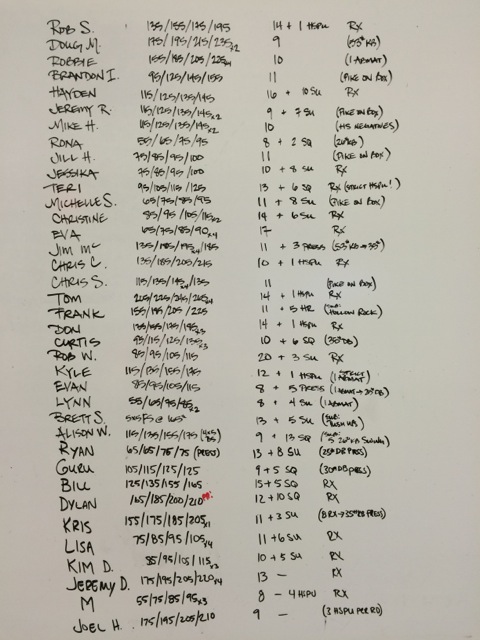 ROB S. 135/155/175/195 14 + 1 HSPU RX
DOUG M. 175/195/215/235x2 9 (53# KB)
ROBBIE 155/185/205/225x4 10 (1 ABMAT)
BRANDON I. 95/125/145/155 11 (PIKE ON BOX)
HAYDEN 115/125/135/145 16 + 10 SU RX
JEREMY R. 115/125/135/145x2 9 + 7 SU (PIKE ON BOX)
MIKE H. 115/125/135/145x2 10 (HS NEGATIVES)
RONA 55/65/75/95 8 + 2 SQ (20# KB)
JILL H. 75/85/95/100 11 (PIKE ON BOX)
JESSIKA 75/85/95/100 10 + 8 SU RX
TERI 95/105/115/125 13 + 6 SQ RX (STRICT HSPU!)
MICHELLE S. 65/75/85/95 11 + 8 SU (PIKE ON BOX)
CHRISTINE 85/95/105/115x2 14 + 6 SU RX
EVA 65/75/85/90x4 17 RX
JIM MC 135/185/195x4/185 11 + 3 PRESS (53# KB→35#)
CHRIS C. 135/185/205/215 10 + 1 HSPU RX
CHRIS S. 115/135/145x4/135 11 (PIKE ON BOX)
TOM 205/225/245/265x4 14 + 1 HSPU RX
FRANK 155/185/205/225 11 + 5 HR (SUB: HOLLOW ROCK)
DON 135/155/175/185x3 14 + 1 HSPU RX
CURTIS 95/115/125/135x3 10 + 6 SQ (35# DB)
ROB W. 85/95/105/115 20 + 3 SU RX
KYLE 115/135/155/175 12 + 1 HSPU (STRICT 1 ABMAT)
EVAN 85/95/105/115 8 + 5 PRESS (1 ABMAT→35# DB)
LYNN 55/65/75/85x2 8 + 4 SU (1 ABMAT)
BRETT S. 5x5 FS @ 165# 13 + 5 SU (SUB: PUSH UPS)
ALISON W. 115/135/155/175 (4x5 85) 9 + 13 SQ (SUB: 5 26# KB)
RYAN 65/65/75/75 (PRESS) 13 + 8 SU (25# DB PRESS)
GURU 105/115/125/125 9 + 5 SQ (30# DB PRESS)
BILL 125/135/155/165 15 + 5 SQ RX
DYLAN 165/185/200/210 PR! 12 + 10 SQ RX
KRIS 155/175/185/205x1 11 + 3 SU (8 RX→35# KB PRESS)
LISA 75/85/95/105x4 11 + 6 SU RX
KIM D. 85/95/105/115x3 10 + 5 SU RX
JEREMY D. 175/195/205/220x4 13 — RX
M 55/75/85/95x3 8 — 4 HSPU RX
JOEL H. 175/195/205/210 9 — (3 HSPU PER RD)